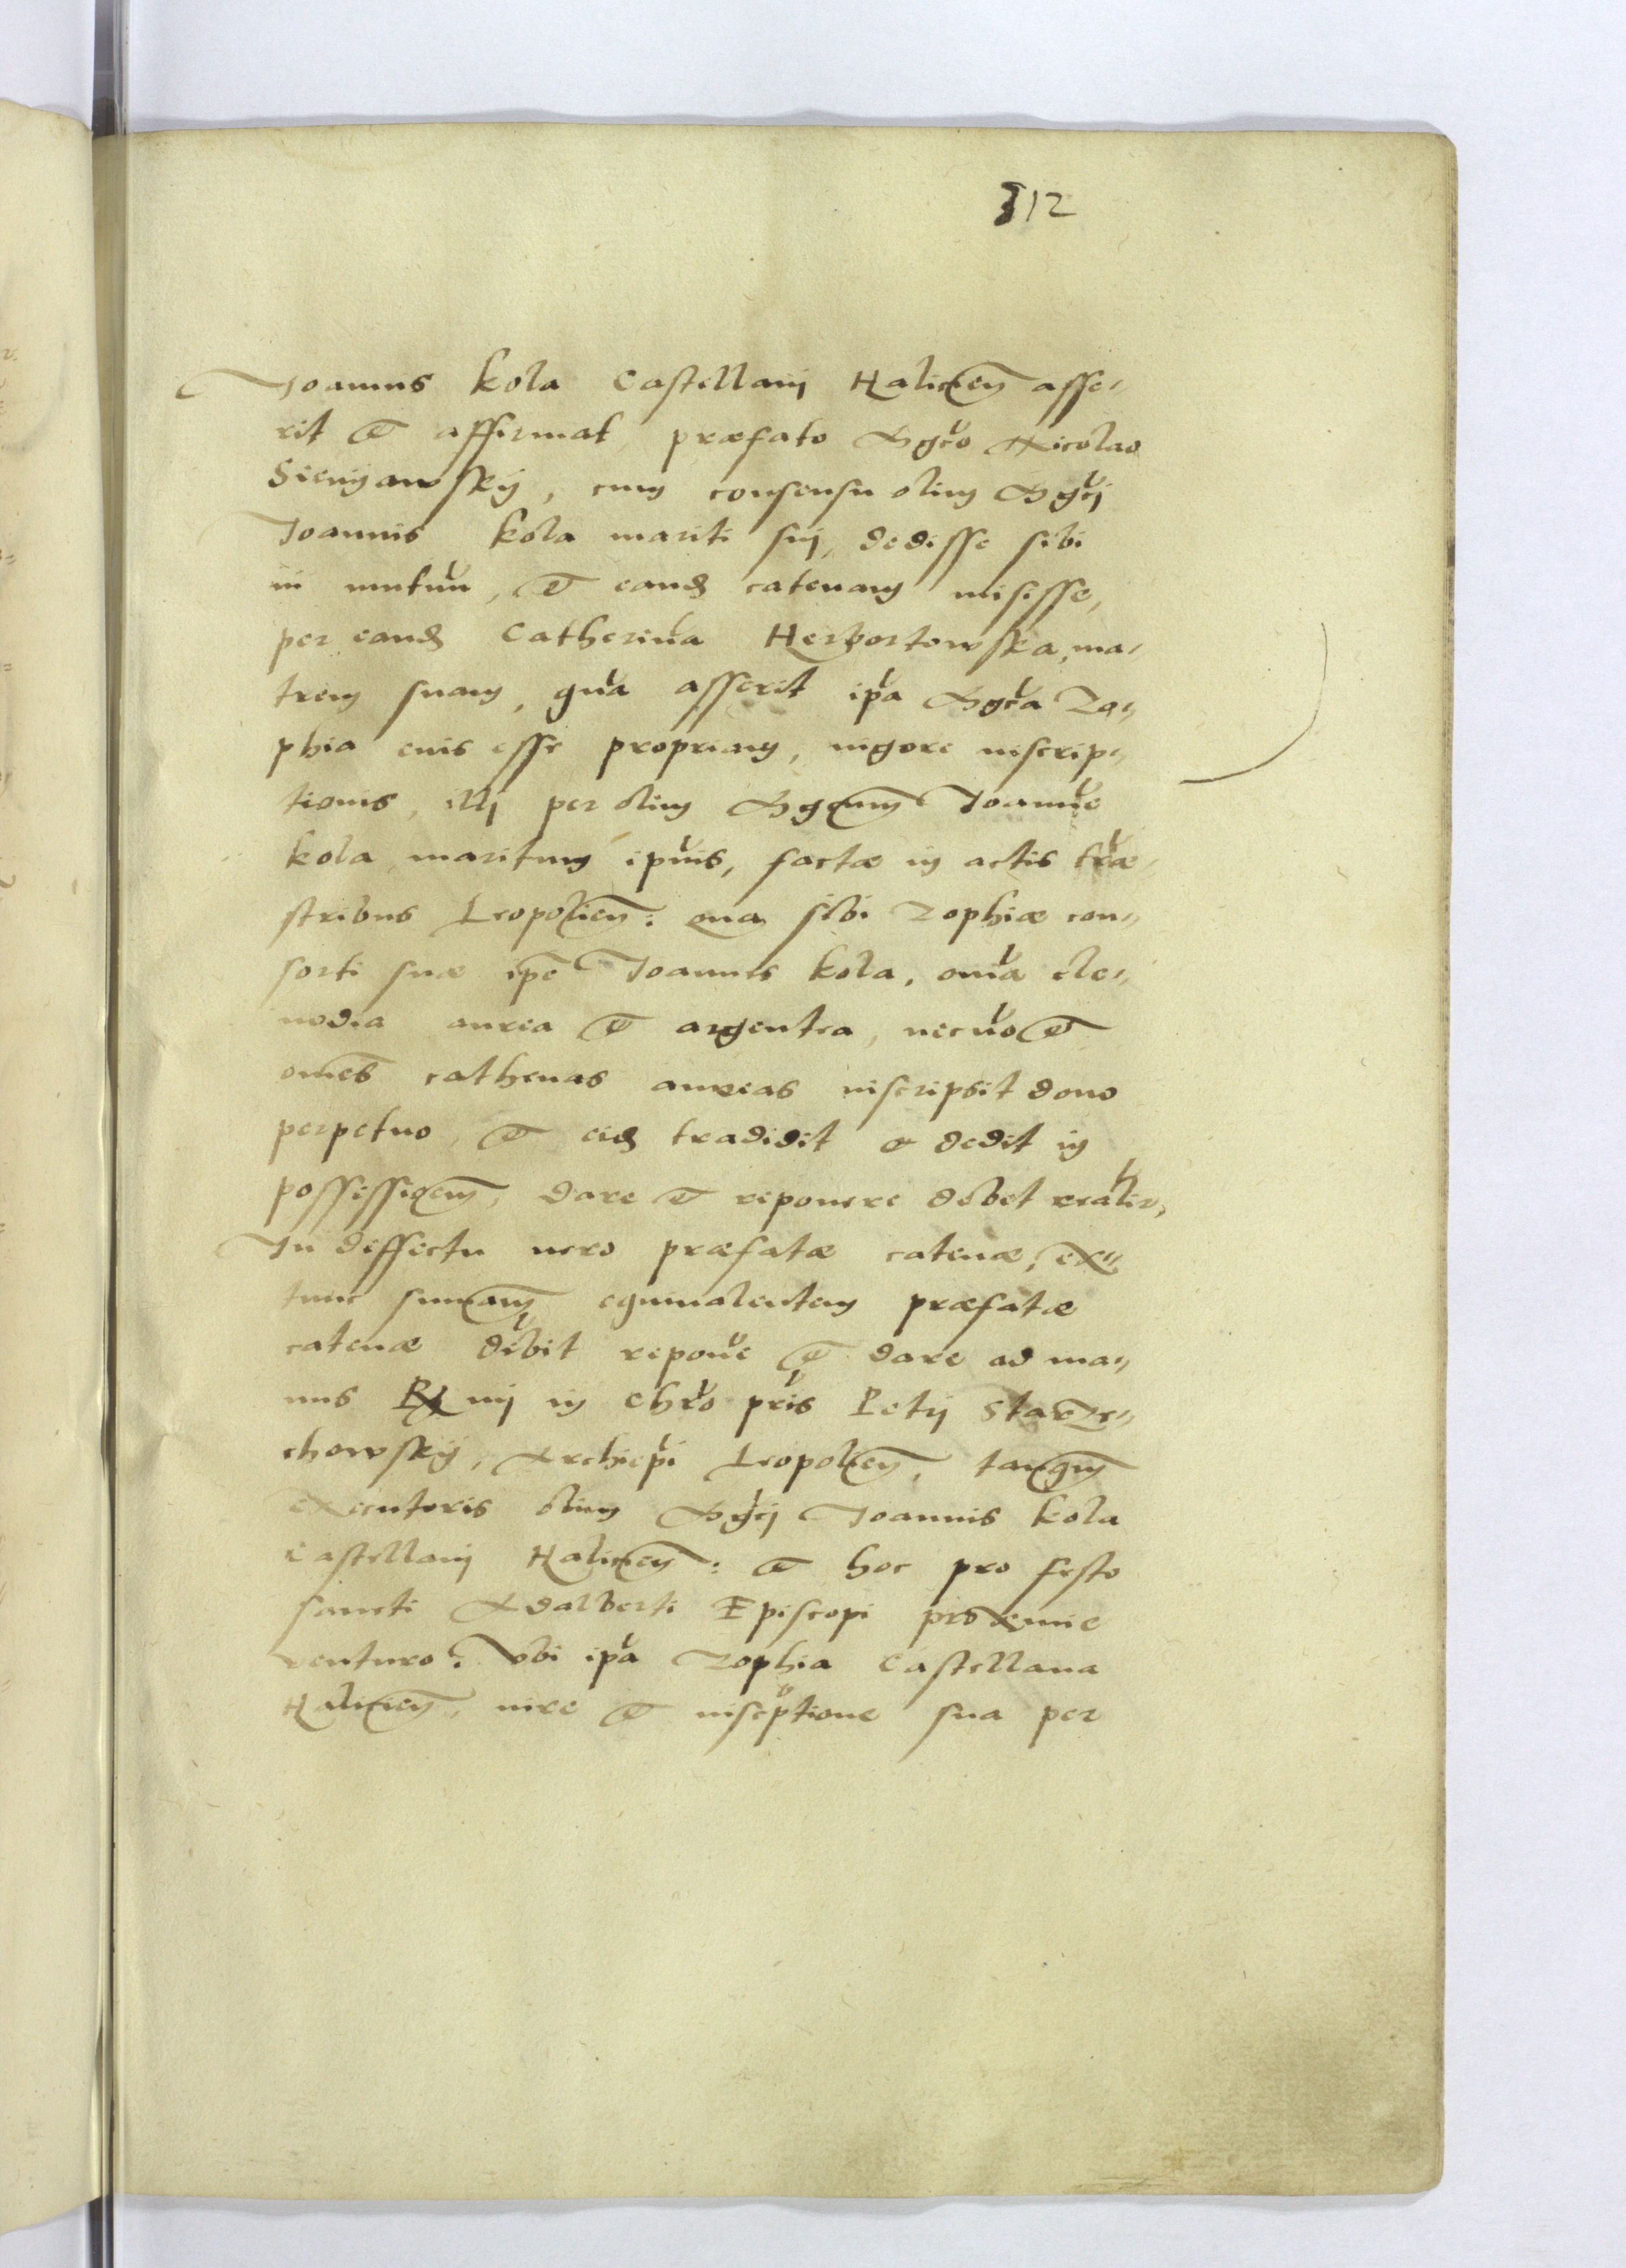 312
Joannis Kola Castellani Halicien̄ asse-
rit et affirmat, præfato Mgco Nicolao
Sienyawsky, cum consensu olim Mgci
Joannis Kola mariti sui, dedisse sibi
in mutuu, et eand catenam misisse,
per eand Catherina Herbortowska, ma-
trem suam, qua asserit ipa Mgca Zo-
phia eius esse propriam, vigore inscrip-
tionis, illi per olim Mgcum Joanne
Kola maritum ipius, factæ in actis træ-
stribus Leopolien: qua sibi Zophiæ con-
sorti suæ ipe Joannes Kola, oma cle-
nodia aurea et argentea, necno et
omes cathenas aureas inscripsit dono
perpetuo, et eid tradidit et dedit in
possessioem, dare et reponere debet realir,
In deffectu vero præfatæ catenæ, ex-
tunc sumam equiualentem præfatæ
catenæ debit repone et dare ad ma-
nus Rmi in Chro pris Petri Starze-
chowsky, Archiepi Leopolien, tanqm
executoris olim Mgci Joannis Kola
Castellani Halicien: et hoc pro festo
sancti Adalberti Episcopi proxime
venturo: Vbi ipa Zophia Castellana
Halicien, iure et inscptione sua per